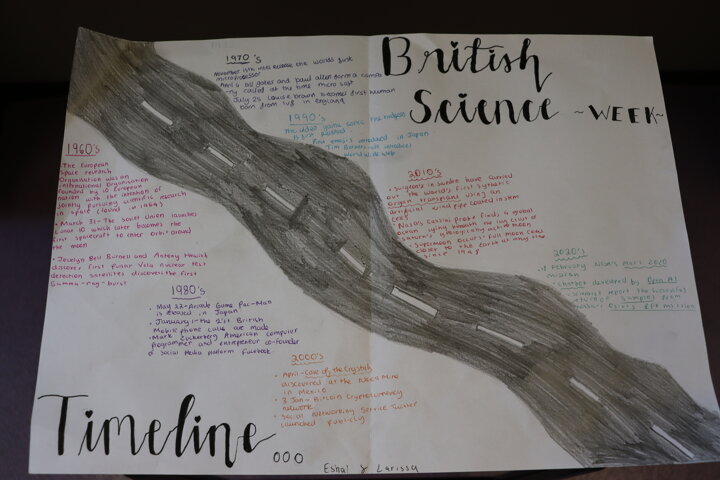 British
Science
~WEEK~
1970's
November 15th intel release the worlds first
microprocessor
April 4 bill gates and paul allen form a compa
-ny called at the time micro soft
July 25 Louise brown becomes first human
born from IVF in england
1990's
The video game sonic the hedgeho
is released
First emojis introduced in Japan
Tim Berners-Lee introduces
world wide web
1960's
• The European
Space research
Organisation was an
international Organisation
founded by 10 European
nation with the intention of
jointly pursuing scientific research
in space (found in 1964)
• March 31- The Soviet Union launches
Luna 10 which later becomes the
First spacecraft to enter orbit around
the moon
• Jocelyn Bell Burnell and Antony Hewish
discover first Pulsar Vela nuclear test
detection satellites discover the first
Gamma-ray-burst
2010's
• Surgeons in Sweden have carried
out the world's first synthetic
organ transplant using an
artificial wind pipe coated in stem
cells
• Nasas Cassini Probe finds a global
ocean beneath the icy crust of
Saturn's geologically active moon
• Supermoon occurs: full moon
closer to the earth
since 1948
2020's
February Nasa's Mars 2020
mission
• Chatbot developed by Open AI
• Scientist report the
return of samples from
mission
1980's
• May 22-Arcade Game Pac-Man
is released in Japan
• January 1-the 1st British
Mobile phone calls are made
• Mark Zuckerberg American computer
Programmer and entrepreneur co-founder
of social media platform Facebook
2000's
• April-Cave of the Crystals
discovered at the Naica Mine
in Mexico
• 3 Jan- Bitcoin Cryptocurrency
network
• Social Networking Service Twitter
launched publicly
Timeline...
Eshal & Larissa